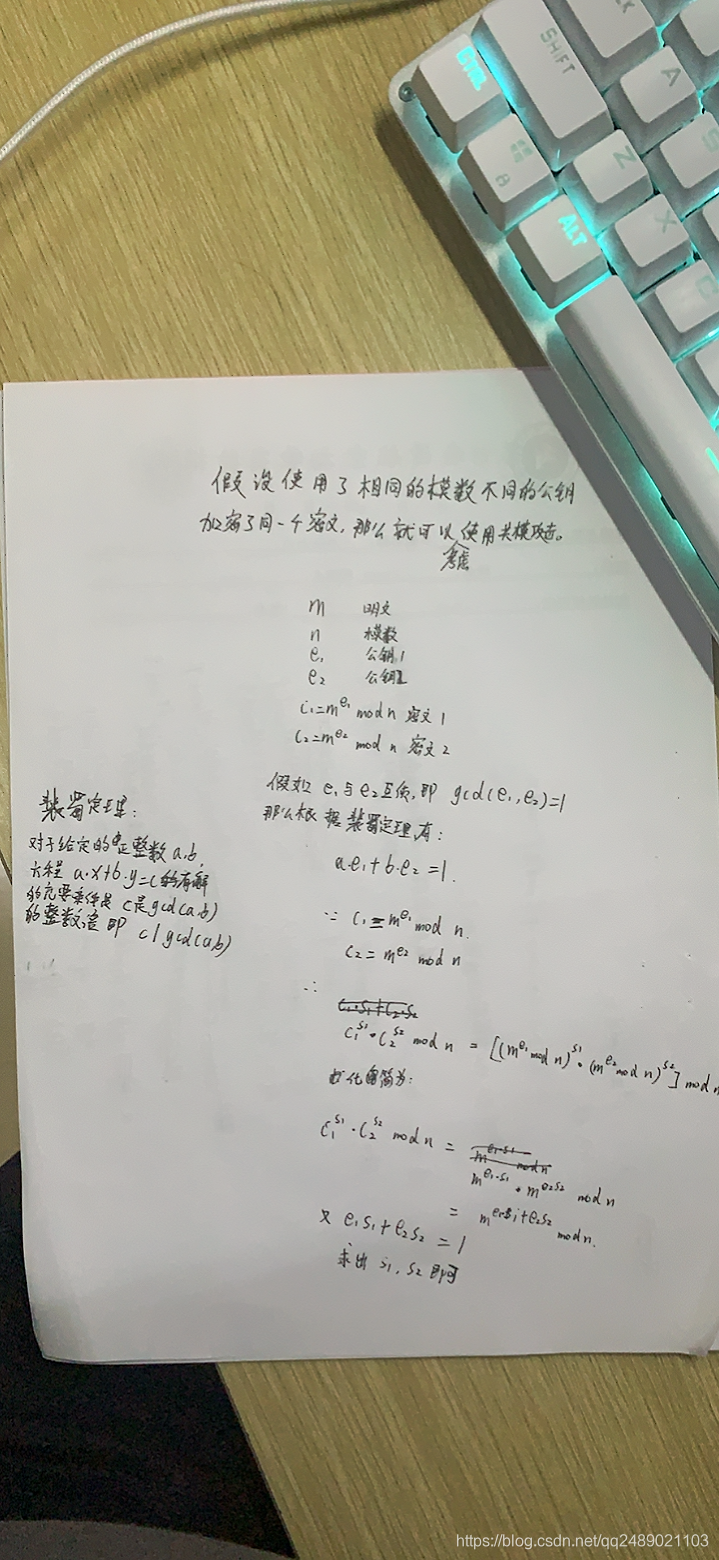 CTRL
SHIFT
A
Z
ALT
X
假设使用了相同的模数不同的公钥
加密了同一个密文,那么就可以使用共模攻击。
考虑
m 明文
n 模数
e₁ 公钥1
e₂ 公钥2
C₁=m^e₁ mod n 密文1
C₂=m^e₂ mod n 密文2
假如 e₁与e₂互质,即 gcd(e₁,e₂)=1
那么根据裴蜀定理,有:
a·e₁+b·e₂=1.
∵ C₁≡m^e₁ mod n.
C₂=m^e₂ mod n
∴
C₁·S₁+C₂·S₂
C₁^S₁·C₂^S₂ mod n = [(m^e₁ mod n)^S₁·(m^e₂ mod n)^S₂] mod n
化简为:
C₁^S₁·C₂^S₂ mod n = m^e₁·S₁ mod n
m^e₁·S₁·m^e₂S₂ mod n
= m^e₁S₁+e₂S₂ mod n.
又 e₁S₁+e₂S₂=1
求出 S₁,S₂即可
裴蜀定理:
对于给定的正整数a,b,
方程 a·x+b·y=c的有解
的充要条件是 c是gcd(a,b)
的整数倍 即 c|gcd(a,b)
https://blog.csdn.net/qq2489021103